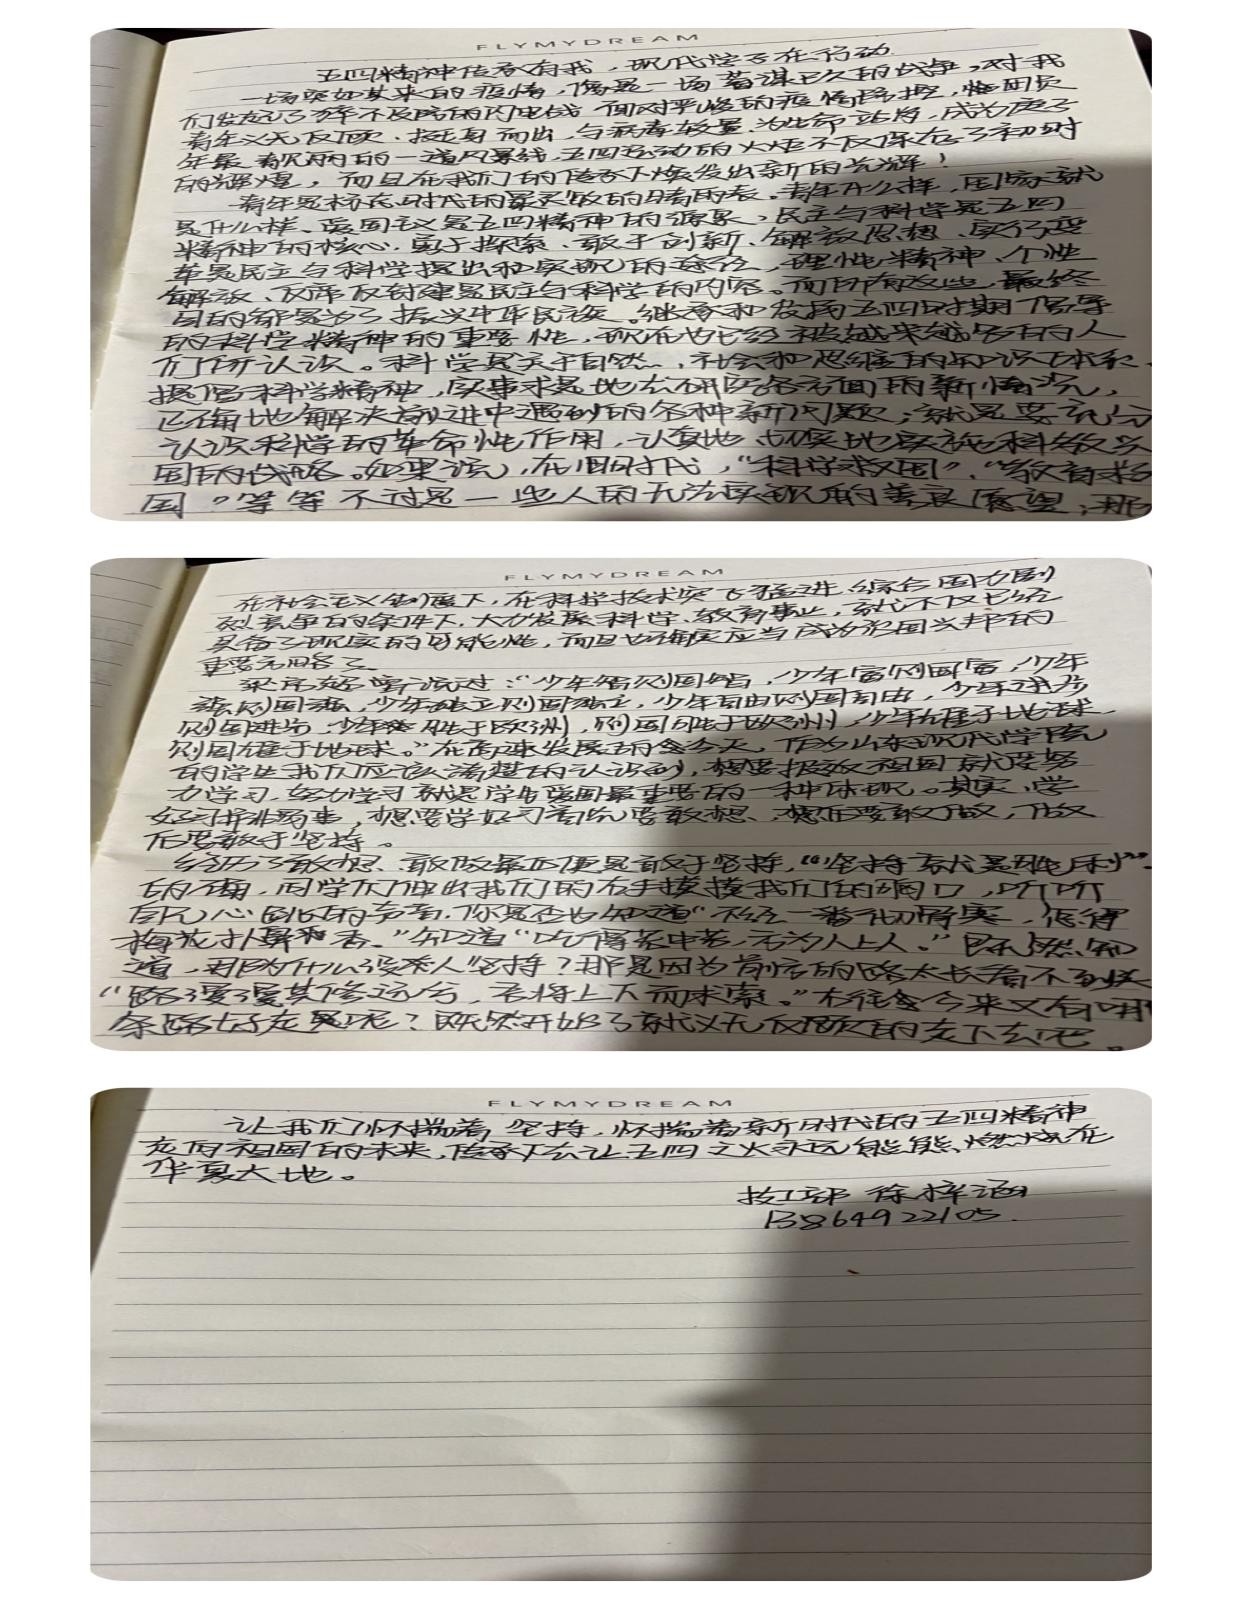 FLYMYDREAM
五四精神传承有我，现代学子在行动
一场突如其来的疫情，像是一场蓄谋已久的战争，对我
们发起了猝不及防的闪电战 面对严峻的疫情阻击，共团员
青年义无反顾、挺身而出，与病毒较量，为生命站岗，成为庚子
年最靓丽的一道风景线，五四运动的火炬不仅保存了初时
的辉煌，而且在我们的传承下焕发出新的光辉！
青年思想在时代的最灵敏的晴雨表。青年什么样，国家就
是什么样。爱国主义是五四精神的源泉，民主与科学是五四
精神的核心，勇于探索、敢于创新、解放思想、实行变
革是民主与科学提出和实现的途径，理性精神、个性
解放、反帝反封建是民主与科学的内容。而所有这些，最终
目的都是为了振兴中华民族。继承和发扬五四时期倡导
的科学精神的重要性，现在也已经被越来越多的人
们所认识。科学是关于自然、社会和思维的知识体系，
提倡科学精神，实事求是地去研究各方面的新情况，
正确地解决前进中遇到的各种新问题；就是要充分
认识科学的革命性作用，认真地切实地实施科教兴
国的战略。如果说，在旧时代，“科学救国”、“教育救
国”等等不过是一些人的无法实现的善良愿望；那
FLYMYDREAM
在社会主义制度下，在科学技术突飞猛进、综合国力剧
烈竞争的条件下，大力发展科学、教育事业，就不仅已经
具备了现实的可能性，而且也确定应当成为强国兴邦的
重要方略了。
梁启超曾说过：“少年智则国智，少年富则国富，少年
强则国强，少年独立则国独立，少年自由则国自由，少年进步
则国进步，少年胜于欧洲，则国胜于欧洲，少年雄于地球，
则国雄于地球。”在高速发展的今天，作为山东现代学院
的学生我们应该清楚的认识到，想要报效祖国就要努
力学习，努力学习就是学生爱国最重要的一种体现。其实，学
好习并非易事，想要学好习首先要敢想、想后要敢于做，做
后要敢于坚持。
经历了敢想、敢做最后便是敢于坚持，“坚持就是胜利”
的确，同学们伸出我们的右手摸摸我们的胸口，听听
自己心里的声音，你是否也知道“不经一番彻骨寒，怎得
梅花扑鼻香。”知道“吃得苦中苦，方为人上人。”既然知
道，那为什么没人坚持？那是因为前方的路太长看不到头
“路漫漫其修远兮，吾将上下而求索。”古往今来又有哪
条路好走呢？既然开始了就义无反顾的走下去吧。
FLYMYDREAM
让我们怀揣着坚持，怀揣着新时代的五四精神
走向祖国的未来，传承下去让五四之火永远熊熊燃烧在
华夏大地。
技工部 徐梓涵
13864922105